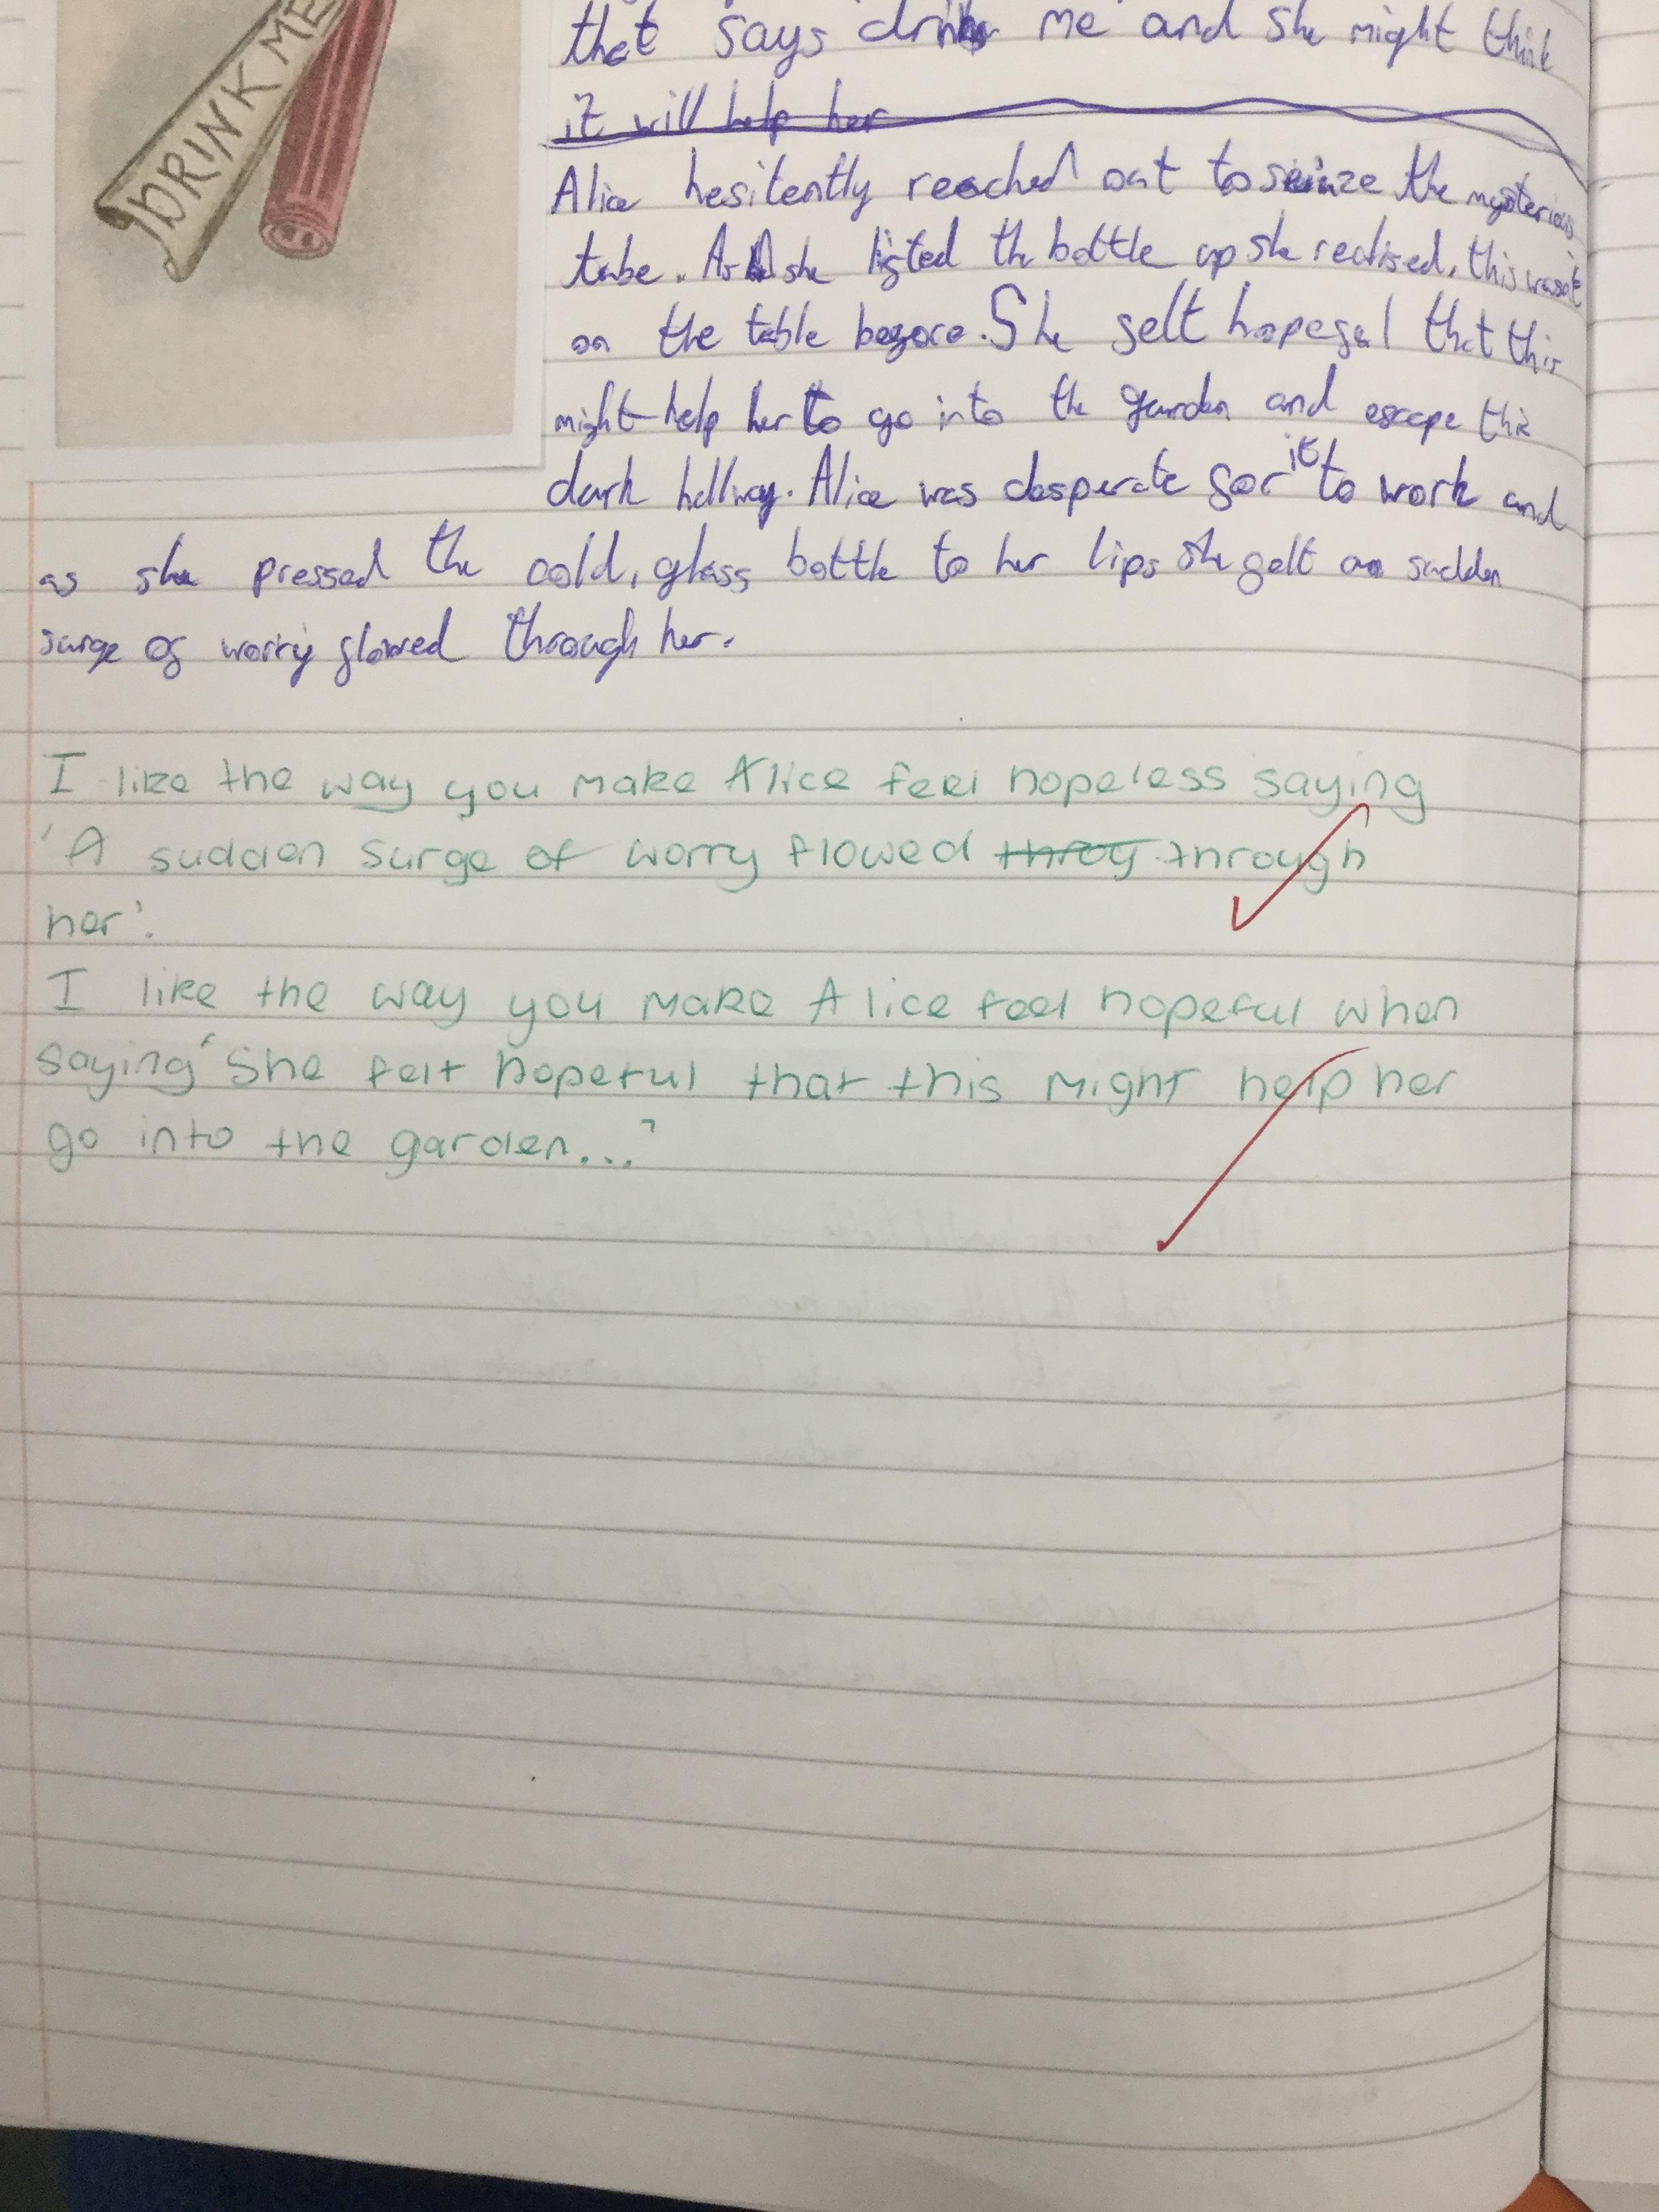 DRINK ME
that says drink me and she might think
it will help her
Alice hesitently reached out to seize the mysterious
tube. As she lifted the bottle up she realised, this wasn't
on the table before. She felt hopeful that this
might help her to go into the garden and escape this
dark hallway. Alice was desperate for it to work and
as she pressed the cold, glass bottle to her lips she felt a sudden
surge of worry flowed through her.
I like the way you make Alice feel hopeless saying
'A sudden surge of worry flowed throy through
her'.
I like the way you make Alice feel hopeful when
saying 'She felt hopeful that this might help her
go into the garden...'